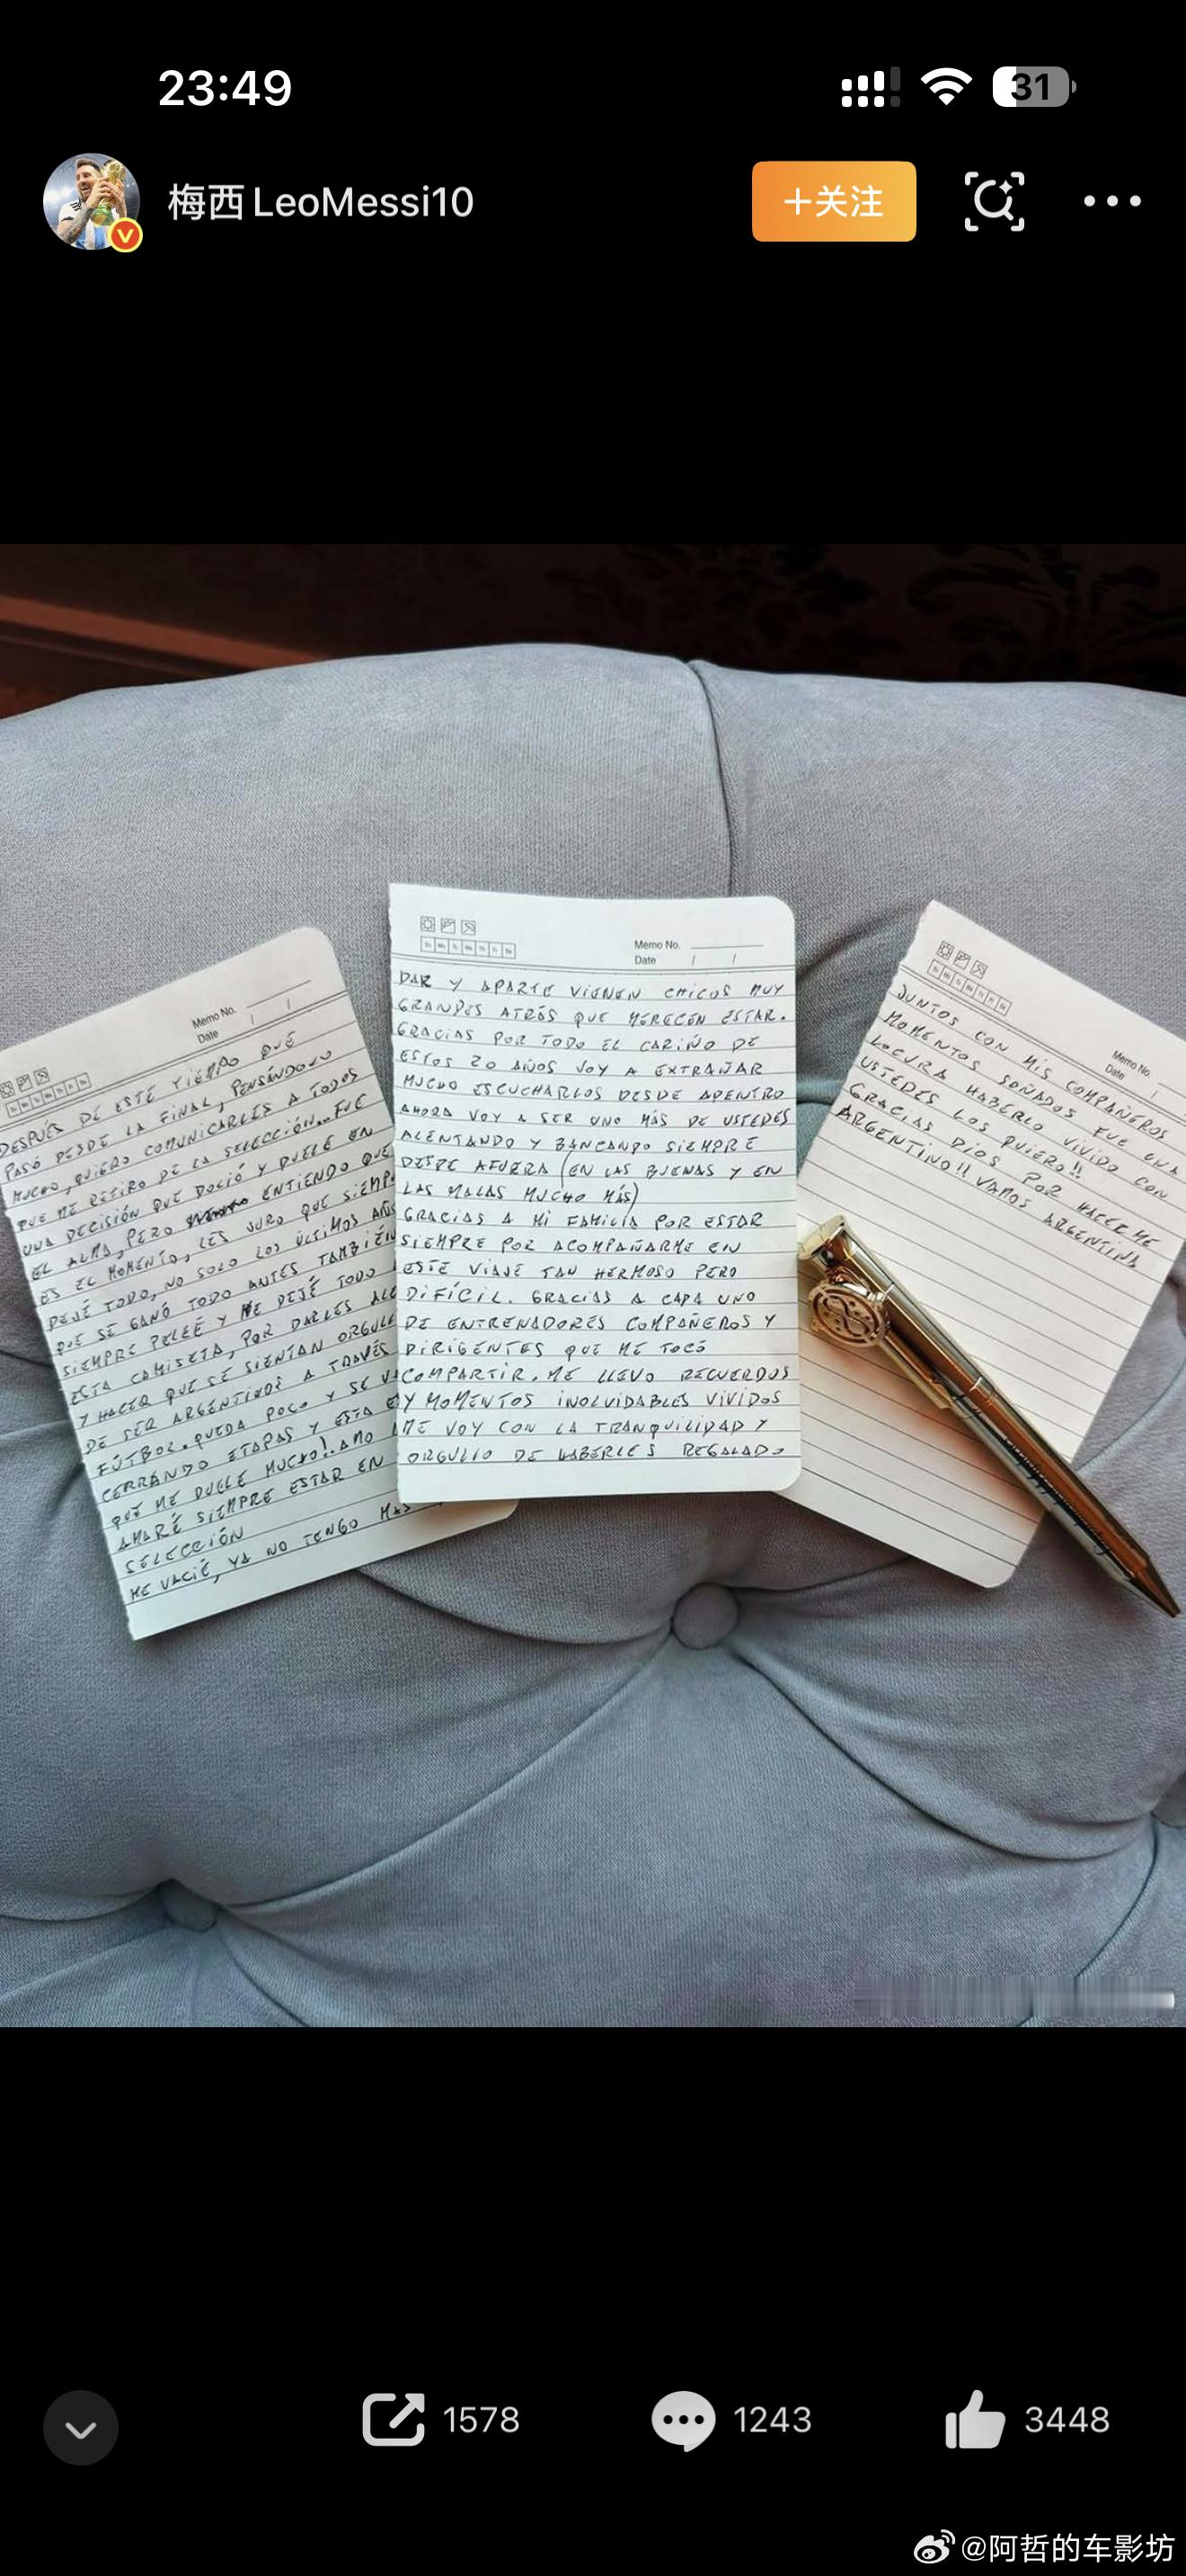 23:49
31
梅西LeoMessi10
+关注
Memo No.
Date / /
DESPUÉS DE ESTE TIEMPO QUE
PASÓ DESDE LA FINAL, PENSÁNDOLO
MUCHO, QUIERO COMUNICARLES A TODOS
QUE ME RETIRO DE LA SELECCIÓN... FUE
UNA DECISIÓN QUE DOLIÓ Y DUELE EN
EL ALMA, PERO ENTIENDO QUE
ES EL MOMENTO, LES JURO QUE SIEMP
DEJÉ TODO, NO SOLO LOS ÚLTIMOS AÑOS
QUE SE GANÓ TODO ANTES TAMBIÉN
SIEMPRE PELEÉ Y ME DEJÉ TODO
ESTA CAMISETA, POR DARLES ALE
Y HACER QUE SE SIENTAN ORGULL
DE SER ARGENTINOS A TRAVÉS
FÚTBOL. QUEDA POCO Y SE V
CERRANDO ETAPAS Y ESTA E
QUE ME DUELE MUCHO! AMO
AMARÉ SIEMPRE ESTAR EN
SELECCIÓN
ME VACIÉ, YA NO TENGO MAS
Memo No.
Date / /
DAR Y APARTE VIENEN CHICOS MUY
GRANDES ATRÁS QUE MERECEN ESTAR.
GRACIAS POR TODO EL CARIÑO DE
ESTOS 20 AÑOS VOY A EXTRAÑAR
MUCHO ESCUCHARLOS DESDE ADENTRO
AHORA VOY A SER UNO MÁS DE USTEDES
ALENTANDO Y BANCANDO SIEMPRE
DESDE AFUERA (EN LAS BUENAS Y EN
LAS MALAS MUCHO MÁS)
GRACIAS A MI FAMILIA POR ESTAR
SIEMPRE POR ACOMPAÑARME EN
ESTE VIAJE TAN HERMOSO PERO
DIFÍCIL. GRACIAS A CADA UNO
DE ENTRENADORES COMPAÑEROS Y
DIRIGENTES QUE ME TOCÓ
COMPARTIR. ME LLEVO RECUERDOS
Y MOMENTOS INOLVIDABLES VIVIDOS
ME VOY CON LA TRANQUILIDAD Y
ORGULLO DE HABERLES REGALADO
Memo No.
Date /
JUNTOS CON MIS COMPAÑEROS
MOMENTOS SOÑADOS FUE UNA
LOCURA HABERLO VIVIDO CON
USTEDES LOS QUIERO!!
GRACIAS DIOS POR HACERME
ARGENTINO!! VAMOS ARGENTINA
1578
1243
3448
@阿哲的车影坊